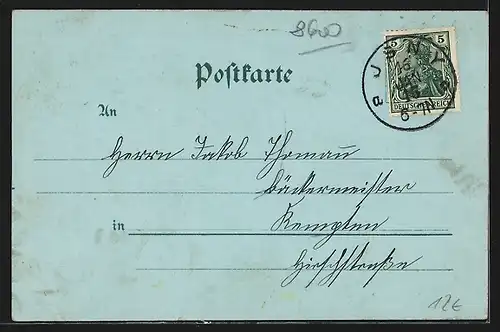 8600
5 5
DEUTSCHES REICH
Postkarte
An
Herrn Jakob Thoman
Bäckermeister
in Kempten
Hirschstraße
12€